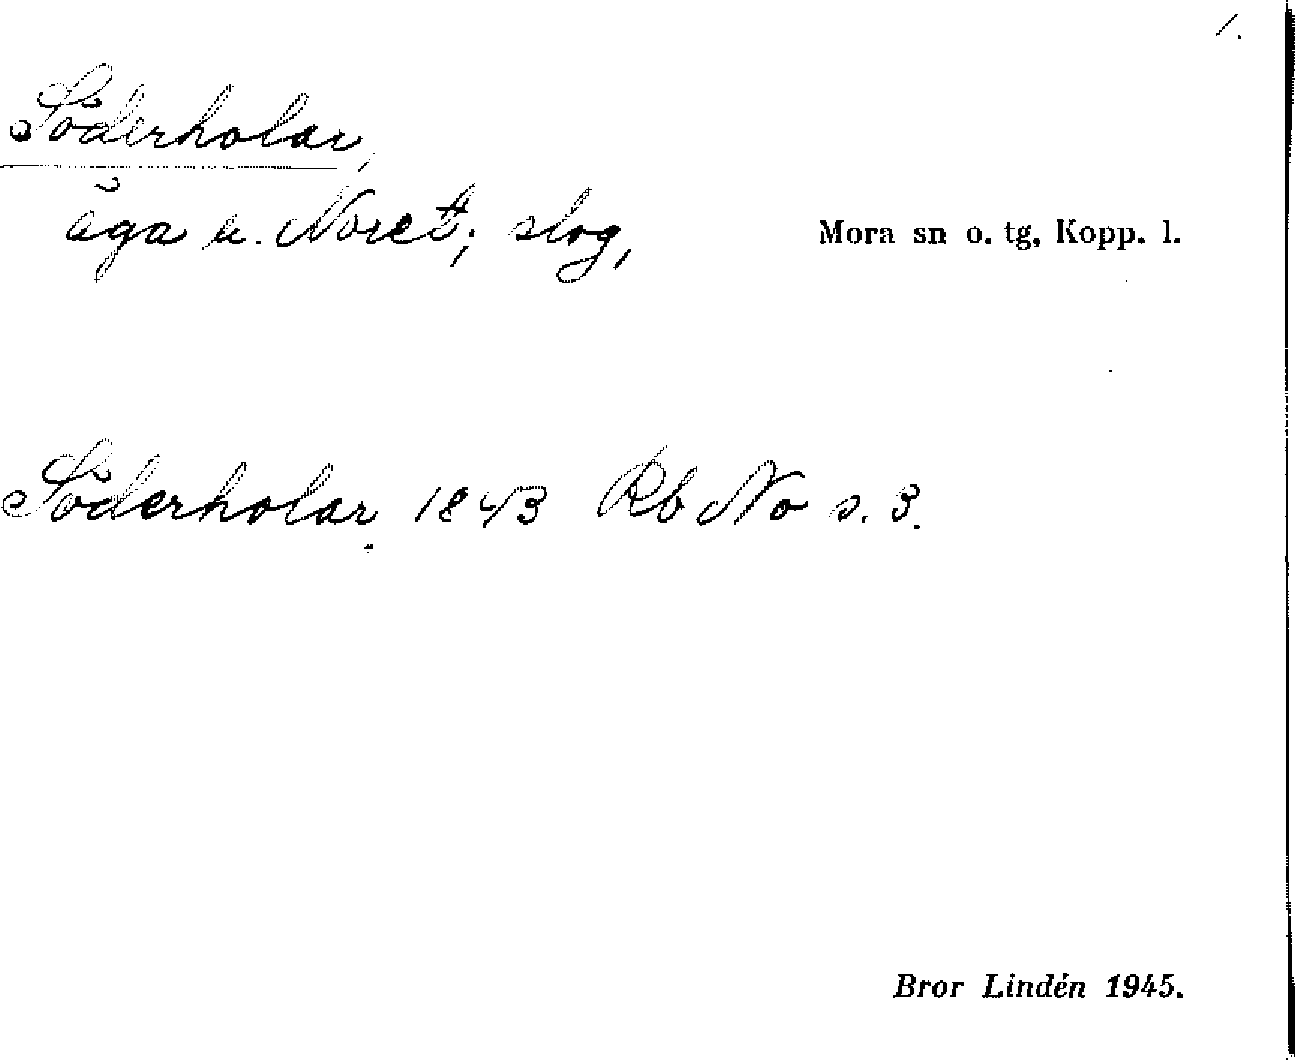 1.
Söderholar,
äga u. Noret; slog,
Mora sn o. tg, Kopp. l.
Söderholar 1843 Rb No s. 3.
Bror Lindén 1945.